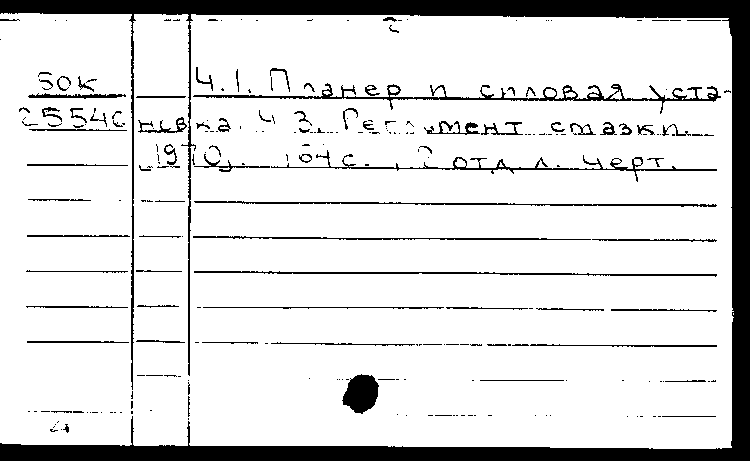 2
50К Ч.1. Планер и силовая уста-
25546 новка. Ч 3. Регламент смазки.
1970. 164 с., 2 отд л. черт.